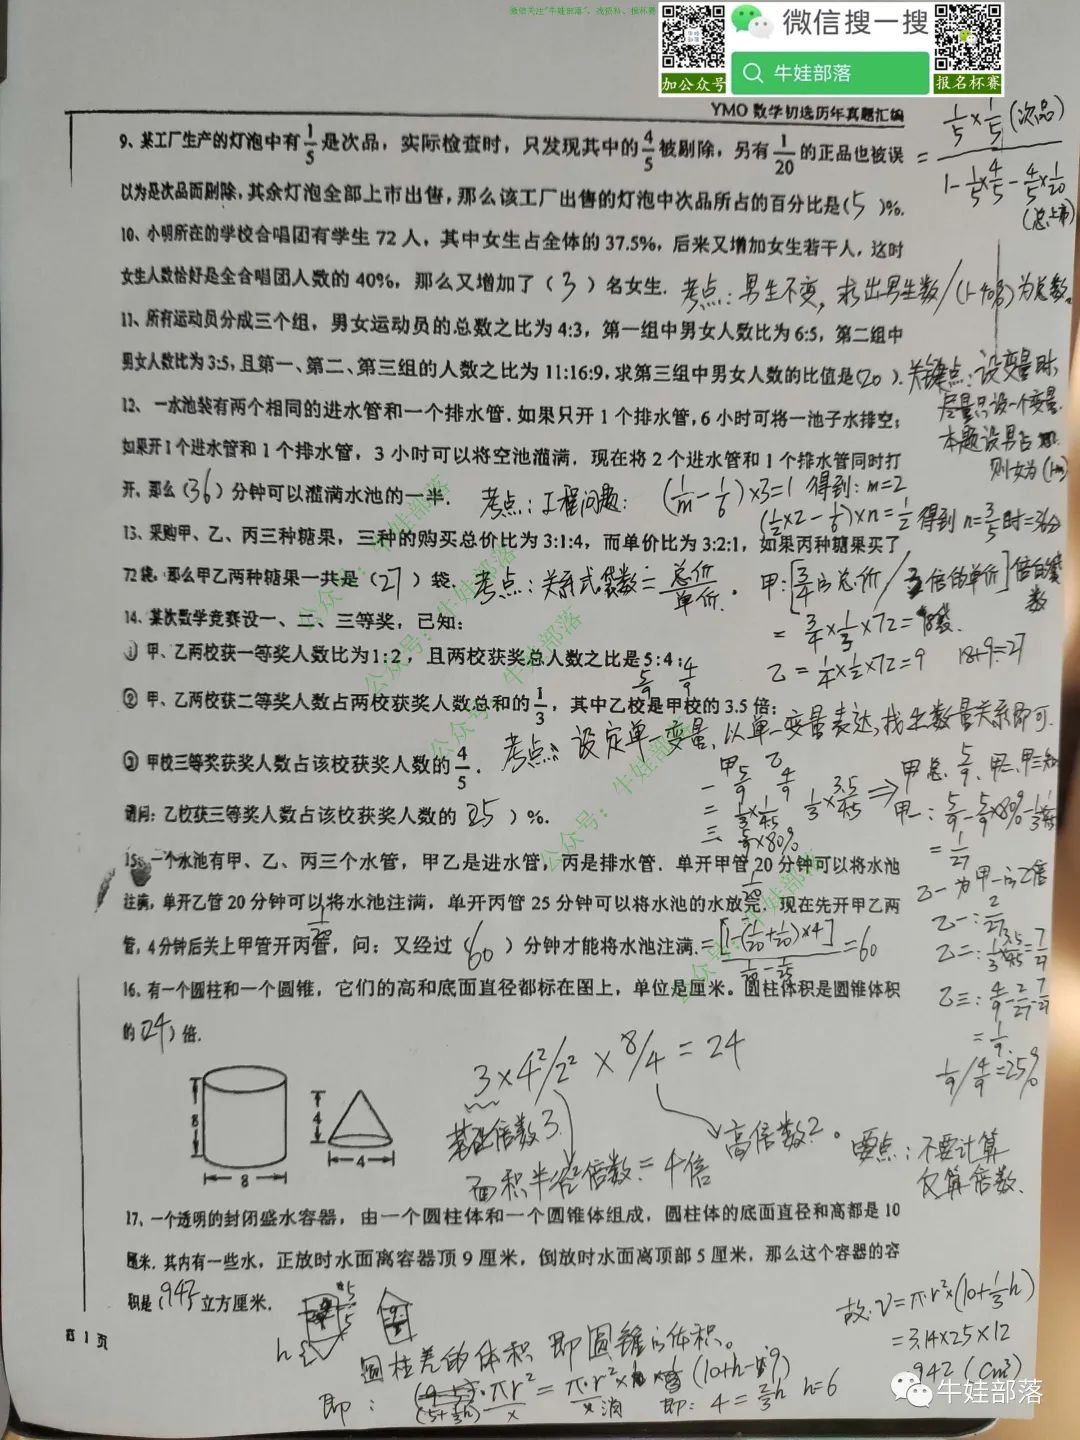 微信关注"牛娃部落"、找资料、报杯赛
微信搜一搜
牛娃部落
加公众号
报名杯赛
YMO 数学初选历年真题汇编
9、某工厂生产的灯泡中有1/5是次品，实际检查时，只发现其中的4/5被剔除，另有1/20的正品也被误
以为是次品而剔除，其余灯泡全部上市出售，那么该工厂出售的灯泡中次品所占的百分比是(5)%.
= 1/5×1/5 (次品) / 1-1/5×4/5-4/5×1/20 (总上市)
10、小明所在的学校合唱团有学生 72 人，其中女生占全体的 37.5%，后来又增加女生若干人，这时
女生人数恰好是全合唱团人数的 40%，那么又增加了（3）名女生. 考点：男生不变，求出男生数/(1-40%)为总数。
11、所有运动员分成三个组，男女运动员的总数之比为 4:3，第一组中男女人数比为 6:5，第二组中
男女人数比为 3:5，且第一、第二、第三组的人数之比为 11:16:9，求第三组中男女人数的比值是(20).
关键点：设变量时，
尽量只设一个变量.
本题设男占
则女为(1-m)
12、一水池装有两个相同的进水管和一个排水管.如果只开 1 个排水管，6 小时可将一池子水排空；
如果开 1 个进水管和 1 个排水管，3 小时可以将空池灌满．现在将 2 个进水管和 1 个排水管同时打
开，那么（36）分钟可以灌满水池的一半. 考点：工程问题： (1/m-1/6)×3=1 得到：m=2
(1/2×2-1/6)×n=1/2 得到 n=3/5时=36分
13、采购甲、乙、丙三种糖果，三种的购买总价比为 3:1:4，而单价比为 3:2:1，如果丙种糖果买了
72 袋，那么甲乙两种糖果一共是（27）袋. 考点：关系式袋数=总价/单价. 甲：[3/4的总价/3倍的单价]倍的袋数
= 3/4×1/3×72=18袋.
乙=1/4×1/2×72=9 18+9=27
14、某次数学竞赛设一、二、三等奖，已知：
① 甲、乙两校获一等奖人数比为 1:2，且两校获奖总人数之比是 5:4；
5/9 4/9
② 甲、乙两校获二等奖人数占两校获奖人数总和的1/3，其中乙校是甲校的 3.5 倍；
考点：设定单一变量，以单一变量表达，找出数量关系即可.
③ 甲校三等奖获奖人数占该校获奖人数的4/5.
请问：乙校获三等奖人数占该校获奖人数的（25）%.
甲 乙
一 5/9 4/9
二 1/3×1/4.5 1/3×3.5/4.5
三 5/9×80%
⇒ 甲总5/9、甲二、甲三知
甲一：5/9-5/9×80%-1/3×1/4.5
=1/27
乙一为甲一的2倍
乙一：2/27
乙二：1/3×3.5/4.5=7/27
乙三：4/9-2/27-7/27
=1/9.
1/9/4/9=25%
15、一个水池有甲、乙、丙三个水管，甲乙是进水管，丙是排水管．单开甲管 20 分钟可以将水池
1/20
注满，单开乙管 20 分钟可以将水池注满，单开丙管 25 分钟可以将水池的水放完．现在先开甲乙两
1/20
管，4 分钟后关上甲管开丙管，问：又经过（60）分钟才能将水池注满. = [1-(1/20+1/20)×4] / 1/20-1/25 =60
16、有一个圆柱和一个圆锥，它们的高和底面直径都标在图上，单位是厘米。圆柱体积是圆锥体积
的(24)倍.
8
8
4
4
3×4²/2² × 8/4 = 24
基础倍数3.
面积半径²倍数=4倍
高倍数2。
要点：不要计算
仅算倍数.
17、一个透明的封闭盛水容器，由一个圆柱体和一个圆锥体组成，圆柱体的底面直径和高都是 10
厘米．其内有一些水，正放时水面离容器顶 9 厘米，倒放时水面离顶部 5 厘米，那么这个容器的容
积是 942 立方厘米.
圆柱差的体积 即圆锥的体积。
h
故：V=π·r²×(10+1/3h)
=3.14×25×12
=942 (cm³)
即：4=2/3h h=6
第 1 页
公众号：牛娃部落
公众号：牛娃部落
公众号：牛娃部落
公众号：牛娃部落
公众号：牛娃部落
牛娃部落